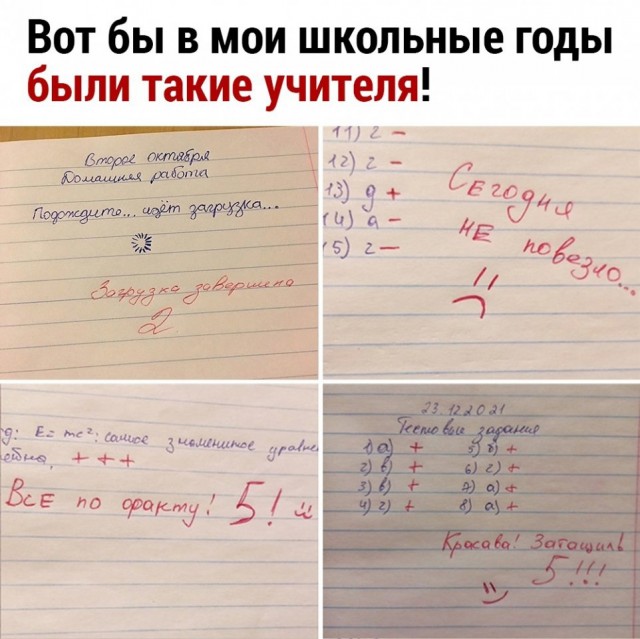 Вот бы в мои школьные годы
были такие учителя!
Второе октября
Домашняя работа
Подождите... идёт загрузка...
Загрузка завершена
2
11) г –
12) г –
13) д +
14) а –
15) г –
Сегодня
не повезло...
E = mc²: самое знаменитое
+ + +
Всё по факту! 5!
23.12.2021
Тестовые задания
1) а) + 5) б) +
2) в) + 6) г) +
3) в) + 7) а) +
4) г) + 8) а) +
Красава! Затащил
5!!!